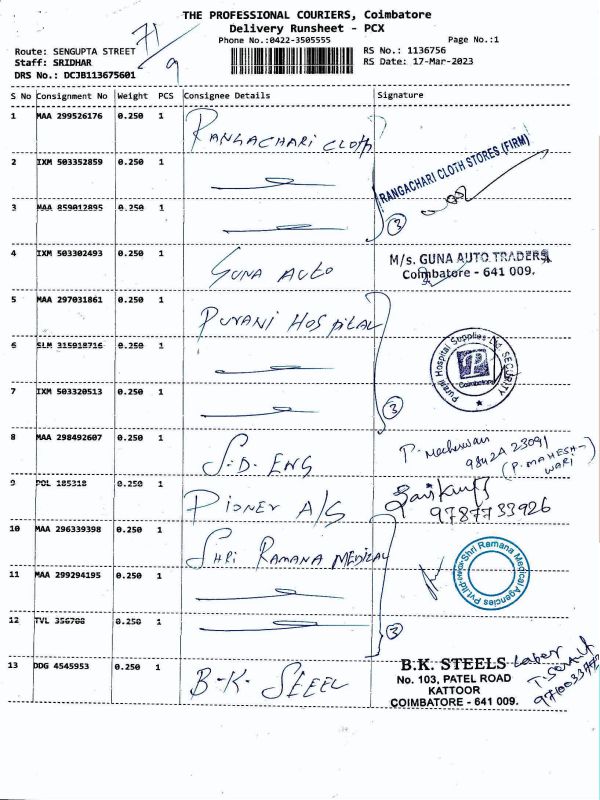 THE PROFESSIONAL COURIERS, Coimbatore
Delivery Runsheet - PCX
Phone No.:0422-3505555
Page No.:1
71/9
Route: SENGUPTA STREET
Staff: SRIDHAR
DRS No.: DCJB113675601
RS No.: 1136756
RS Date: 17-Mar-2023
S No Consignment No Weight PCS Consignee Details Signature
1 MAA 299526176 0.250 1 RANGACHARI CLOTH
2 IXM 503352859 0.250 1
RANGACHARI CLOTH STORES (FIRM)
3 MAA 859012895 0.250 1
3
4 IXM 503302493 0.250 1 GUNA AUTO
M/s. GUNA AUTO TRADERS
Coimbatore - 641 009.
5 MAA 297031861 0.250 1 PURANI HOSPITAL
6 SLM 315918716 0.250 1
Purani Hospital Supplies Ltd. SECURITY
Coimbatore
7 IXM 503320513 0.250 1
3
8 MAA 298492607 0.250 1 S.D. ENG
P. Maheswari
98424 23091
(P. MAHESH-
WARI)
9 POL 185318 0.250 1 PIONER A/S
9787733926
10 MAA 296339398 0.250 1 SHRI RAMANA MEDICAL
11 MAA 299294195 0.250 1
Shri Ramana Medical Agencies Pvt.Ltd
12 TVL 356708 0.250 1
3
13 DDG 4545953 0.250 1 B.K. STEEL
B.K. STEELS
No. 103, PATEL ROAD
KATTOOR
COIMBATORE - 641 009.